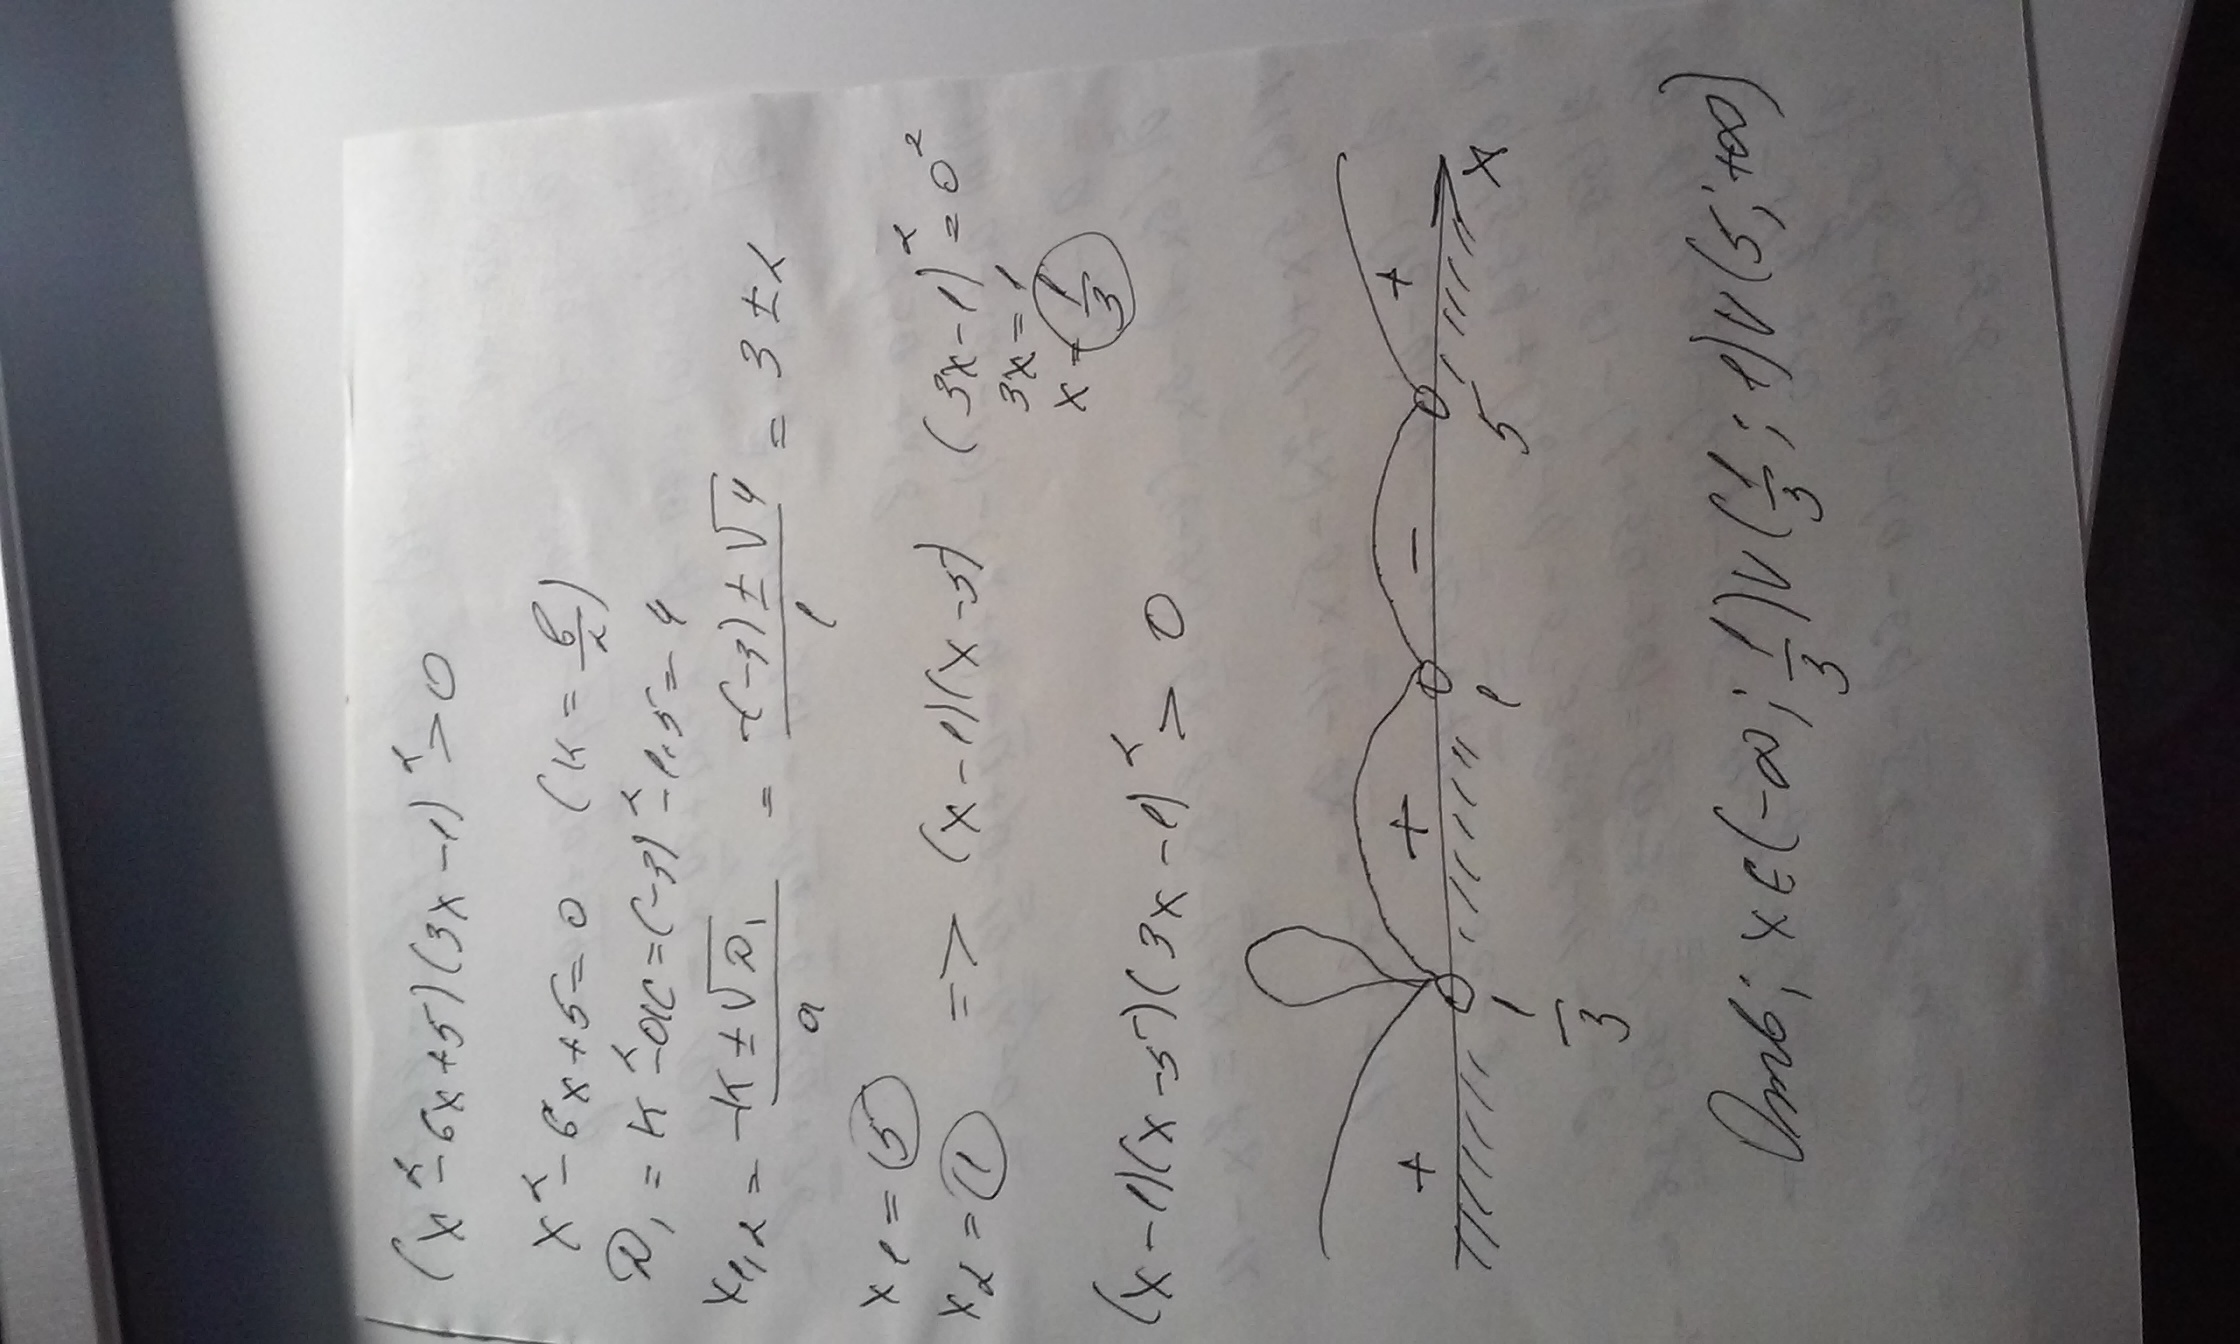 (x² - 6x + 5)(3x - 1)² > 0
x² - 6x + 5 = 0 (k = b/2)
D₁ = k² - ac = (-3)² - 1·5 = 4
x₁,₂ = (-k ± √D₁)/a = (-(-3) ± √4)/1 = 3 ± 2
x₁ = 5
x₂ = 1 => (x - 1)(x - 5) (3x - 1)² = 0²
3x = 1
x = 1/3
(x - 1)(x - 5)(3x - 1)² > 0
+ + - +
1/3 1 5 x
Отв: x ∈ (-∞; 1/3) ∪ (1/3; 1) ∪ (5; +∞)